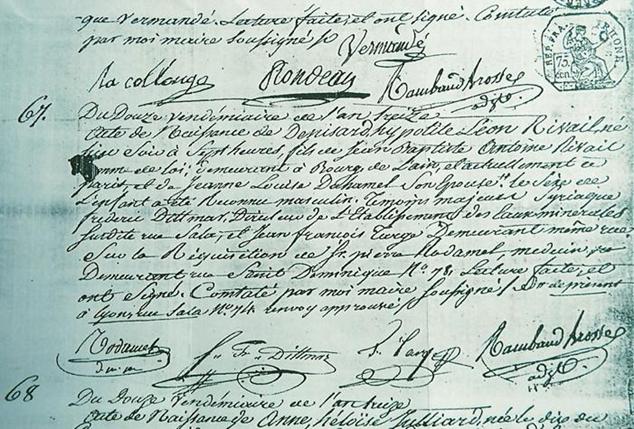 que Vermandé. Lecture faite, et ont signé. Constaté
par moi maire soussigné /.
Vermandé
La collonge Rondeau Rambaud Brosse
adjt
REP. FRA. RHONE
75
67.
Du Douze Vendémiaire de l'an treize
acte de Naissance de Denisard hypolite Léon Rivail, né
hier Soir à Sept heures, fils de Jean Baptiste Antoine Rivail
homme de loi, demeurant à Bourg de Lain, et actuellement à
paris, et de Jeanne Louise Duhamel Son Epouse. le Sexe de
l'enfant a été Reconnu masculin. Témoins majeurs Syriaque
frederic Dittmar, Directeur de L'Etablissement des Eaux minérales
susdite rue Sala, et Jean François Targe Demeurant même rue
Sur la Réquisition de Sr. pierre Rodamel, medecin,
Demeurant rue Saint Dominique No. 78, Lecture faite, et
ont Signé. Constaté par moi maire Soussigné / De présent
à Lyon, rue Sala No. 74 renvoy approuvé /
Rodamel fr. Dittmar Targe Rambaud Brosse
d. m. adjt
68
Du Douze Vendémiaire de l'an treize
acte de Naissance de Anne, héloïse Julliard, née le dix du